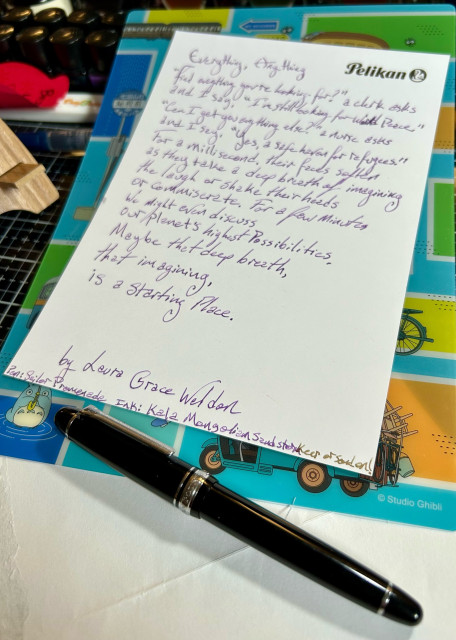 Pelikan
Everything, Anything
"Find anything you're looking for?" a clerk asks
and I say, "I'm still looking for World Peace."
"Can I get you anything else?" a nurse asks
and I say, "Yes, a safe haven for refugees."
For a millisecond, their faces soften
as they take a deep breath of imagining
the laugh or shake their heads
or commiserate. For a few minutes
We might even discuss
our planet's highest Possibilities.
Maybe that deep breath,
that imagining,
is a starting Place.
by Laura Grace Weldon
Pen: Sailor Promenade Ink: Kala Mongolian Sandstorm
© Studio Ghibli